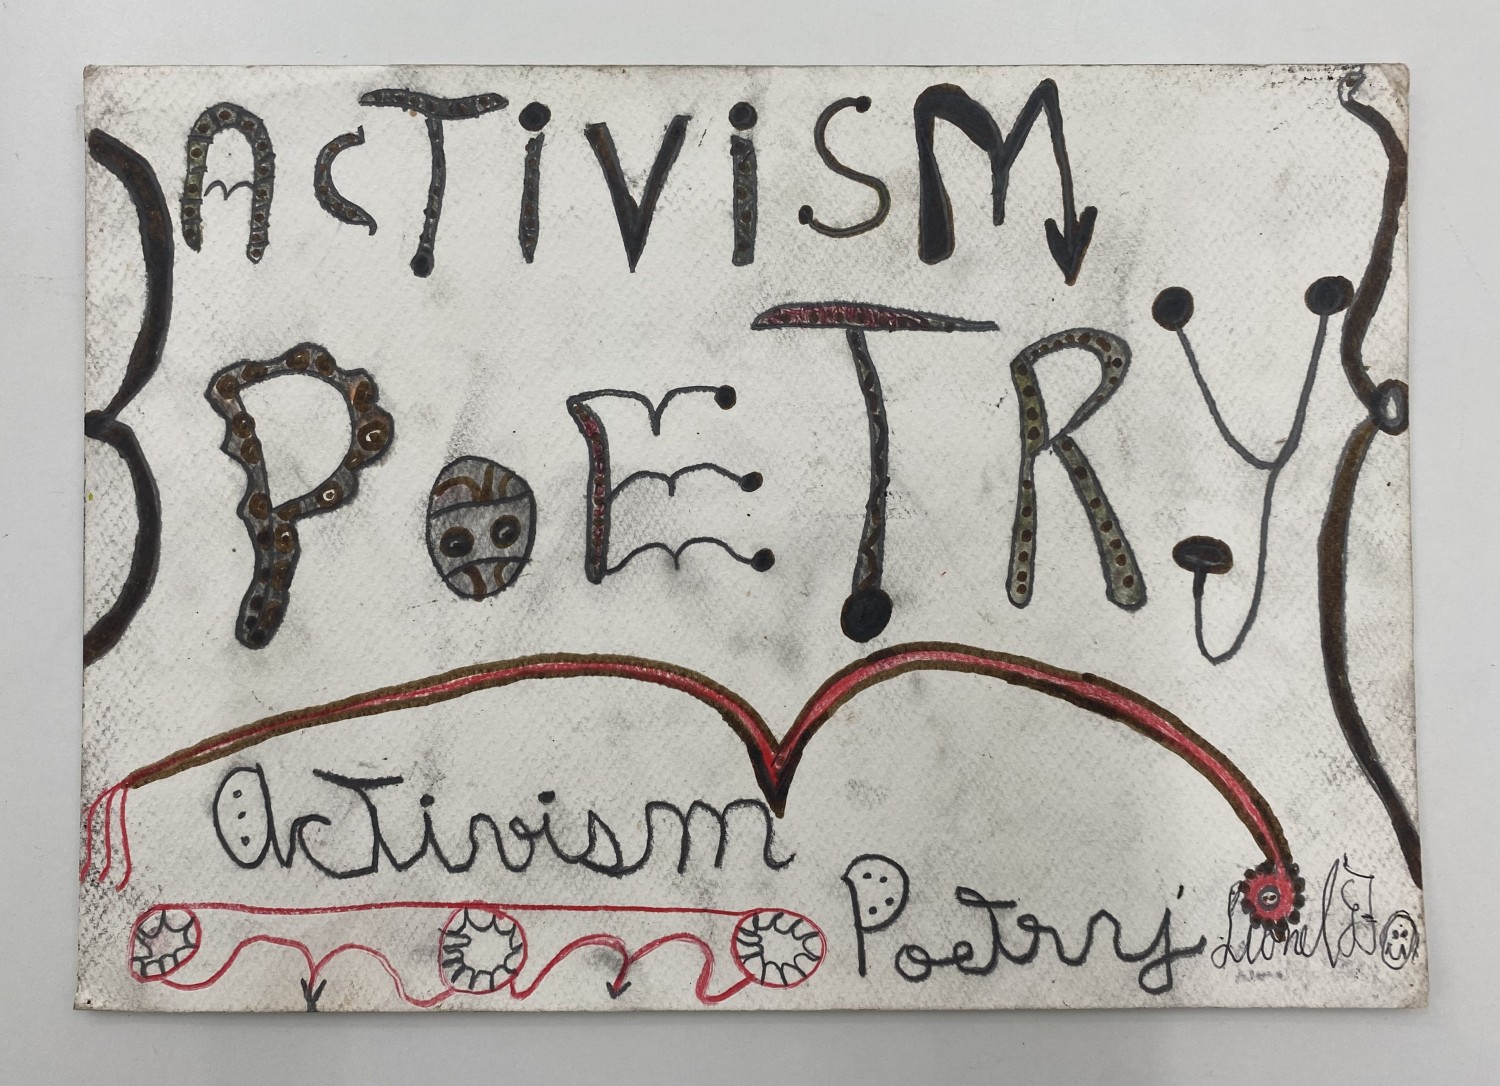 AcTiviSM
PoETRY
AcTivism
Poetry
Lionel